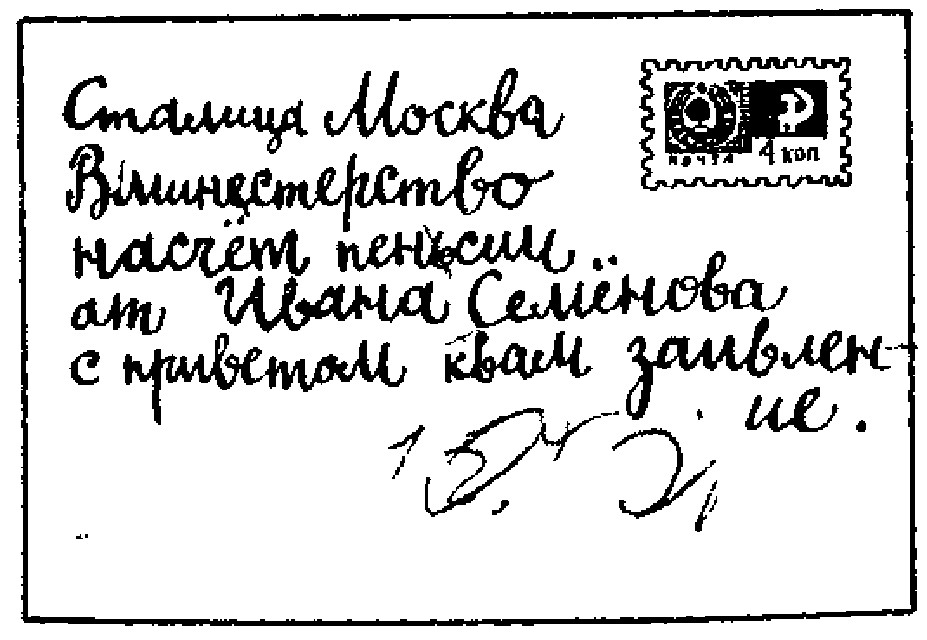 Сталица Москва
Вминестерство
насчёт пеньсии
от Ивана Семёнова
с приветом квам заивлен-
ие.
ПОЧТА 4 коп